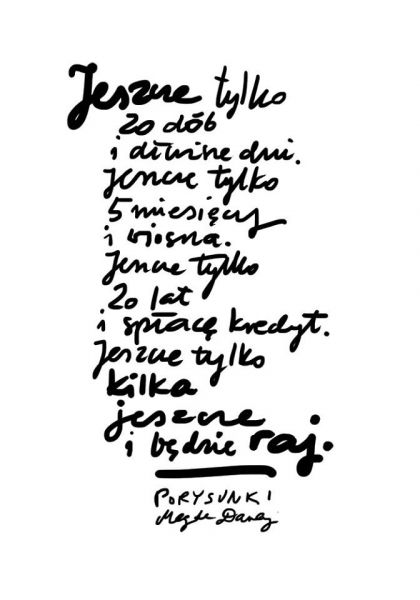 Jeszcze tylko
20 dób
i dłuższe dni.
Jeszcze tylko
5 miesięcy
i wiosna.
Jeszcze tylko
20 lat
i spłacę kredyt.
Jeszcze tylko
kilka
jeszcze
i będzie raj.
PORYSUNKI
Magda Danaj